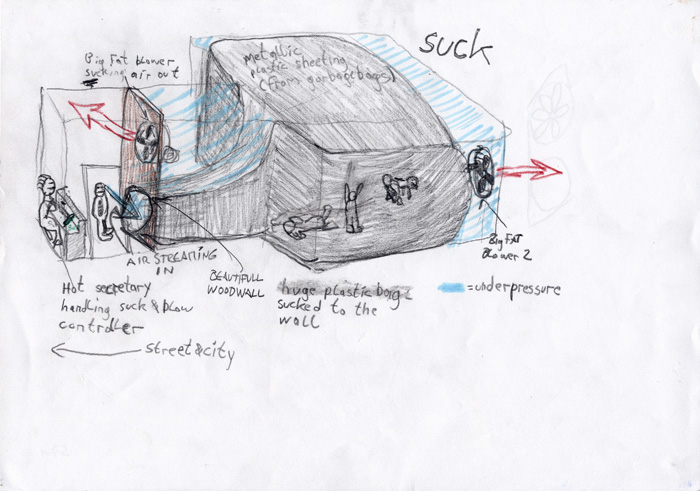 SUCK
Big Fat blower
sucking air out
metallic
plastic sheeting
(from garbagebags)
AIR STREAMING
IN
BEAUTIFULL
WOODWALL
Big FAT
Blower 2
Hot secretary
handling suck & blow
controller
huge plastic bag
sucked to the
wall
=underpressure
street&city